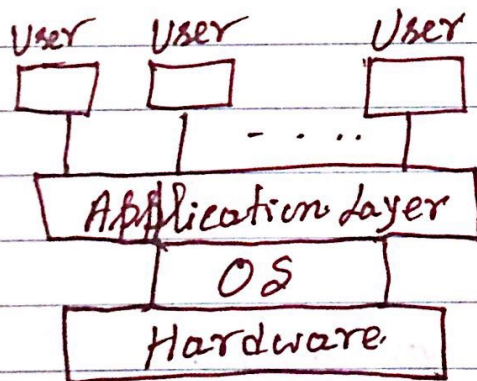 User User User
Application Layer
OS
Hardware